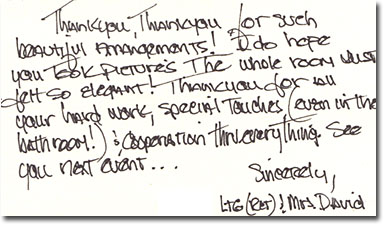 Thankyou, Thankyou for such
beautiful Arrangements! I do hope
you took pictures The whole room just
felt so elegant! Thankyou for all
your hard work, special touches (even in the
bathroom!) & cooperation thru everything. See
you next event...
Sincerely,
LTG (Ret) & Mrs. David